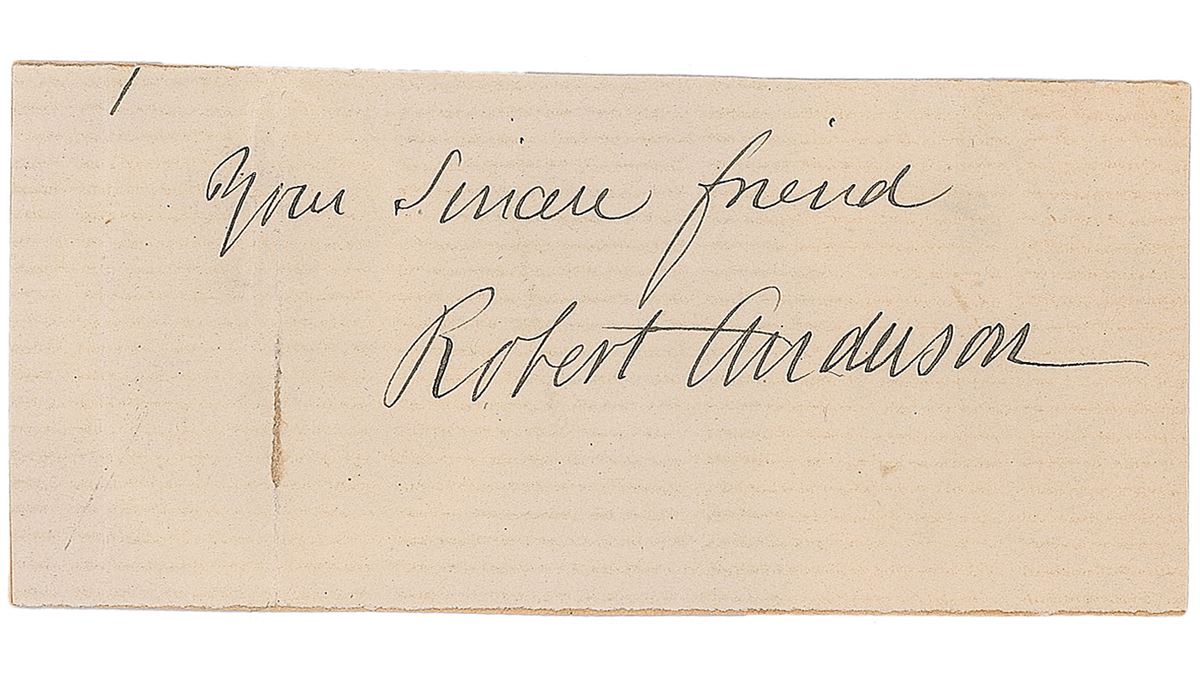 Your Sincere friend
Robert Anderson